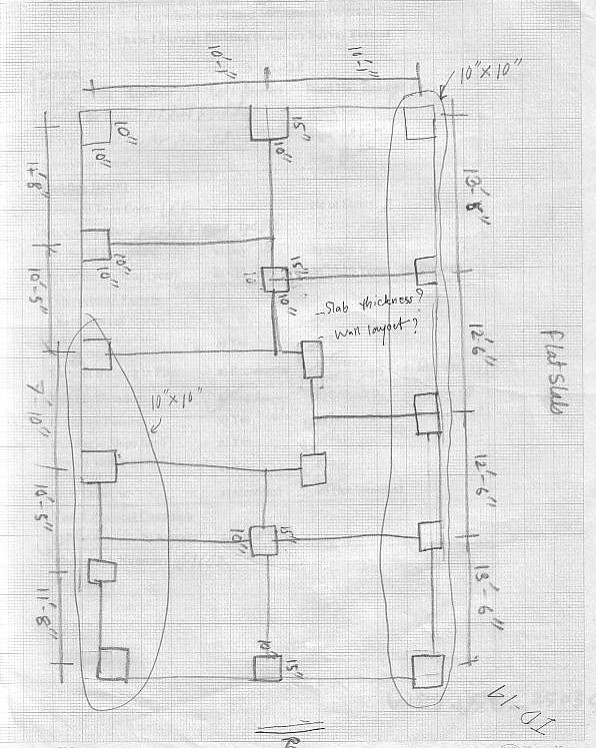 10'-1"
10'-1"
10" X 10"
10"
10"
15"
10"
13'-8"
11'-8"
10"
10"
15"
10"
10"
10'-5"
- Slab thickness?
- Wall layout?
12'-6"
Flat Slab
10" X 10"
7'-10"
12'-6"
10'-5"
15"
10"
13'-6"
11'-8"
10"
15"
ID-19